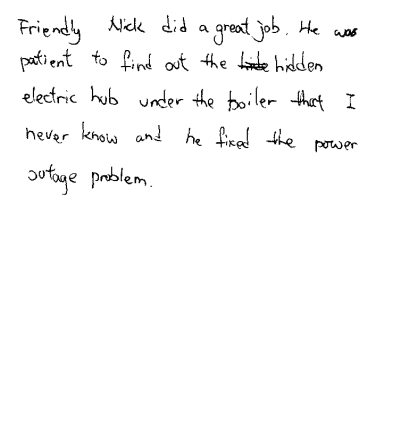 Friendly Nick did a great job. He was
patient to find out the hidden
electric hub under the boiler that I
never know and he fixed the power
outage problem.